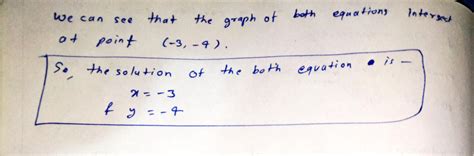 We can see that the graph of both equations Intersect
at point (-3, -4).
So, the solution of the both equation is -
x = -3
& y = -4